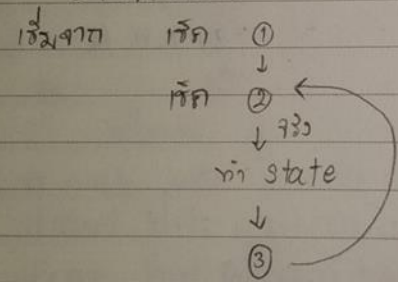 เริ่มจาก เช็ค ①
↓
เช็ค ②
↓ จริง
ทำ state
↓
③